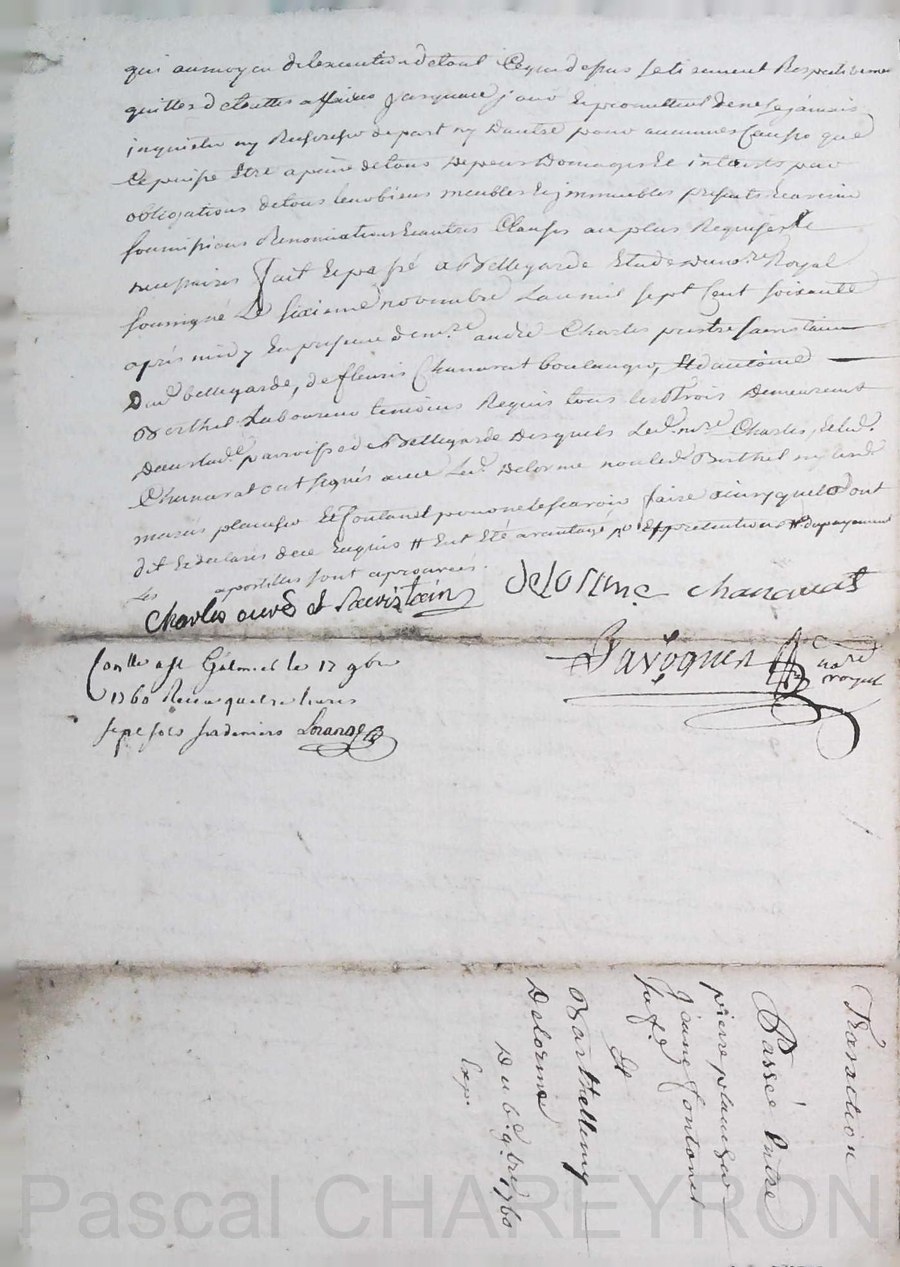 qui au moyen de lexecution de tout Ceque dessus se tiennent Respectivement
quittes de touttes affaires jusquace jour Et promettent de ne se jamais
inquieter ny Rechercher de part ny Dautre pour aucunnes Causes que
Ce puisse Etre a peine de tous Depens Domages Et interests par
obligations de tous leurs biens meubles Et immeubles presents Et avenir
soumissions Renonciations Et autres Clauses au plus Requises Et
necessaires fait Et passé a Bellegarde Etude du no.re Royal
soussigné Le sixieme novembre Lan mil sept Cent soixante
après midy En presence de m.re andré Charles prestre sacristain
Dud. bellegarde, de fleuris Chanavat boulanger, Et dantoine
Berthel Laboureur temoins Requis tous lestrois Demeurant
Deus lad. parroisse de Bellegarde Desquels Led. m.re Charles, le d.
Chanavat ont signés avec Led. Delorme non led. Berthel ny lesd.
mariés plancher Et fontanel pour ne le scavoir faire ainsy quils ont
dit Et declarés de ce Enquis # Eut Eté avantagé # du payement
Les apostilles sont aprouvées.
Charles curé et Sacristain Delorme chanavat
Javogues no.re royal
Con.lle a s.t Galmier le 17 9bre
1760 Recu quatre livres
sept sols six deniers
Transaction
Passée Entre
pierre plancher
Jeanne fontanel
sa f.e
Et
Barthellemy
Delorme
Du 6.e 9.bre 1760
Exp.
Pascal CHAREYRON